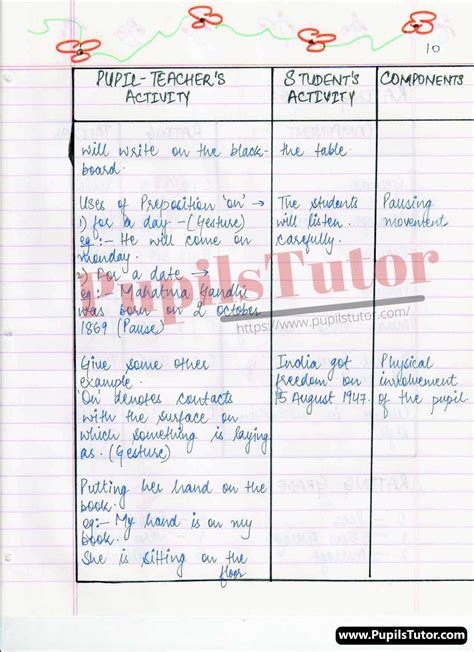 10
PUPIL-TEACHER'S ACTIVITY
STUDENT'S ACTIVITY
COMPONENTS
will write on the black-
board.
the table.
Uses of Preposition 'on' →
1) for a day - (Gesture)
eg:- He will come on
monday.
2) For a date →
eg:- Mahatma Gandhi
was born on 2 october
1869 (Pause)
The students
will listen
carefully.
Pausing
movement
Give some other
example.
'On' denotes contacts
with the surface on
which something is laying
as. (Gesture)
India got
freedom on
15 August 1947.
Physical
involvement
of the pupil
Putting her hand on the
book.
eg:- My hand is on my
book.
She is sitting on the
floor
PupilsTutor
https://www.pupilstutor.com/
www.PupilsTutor.com